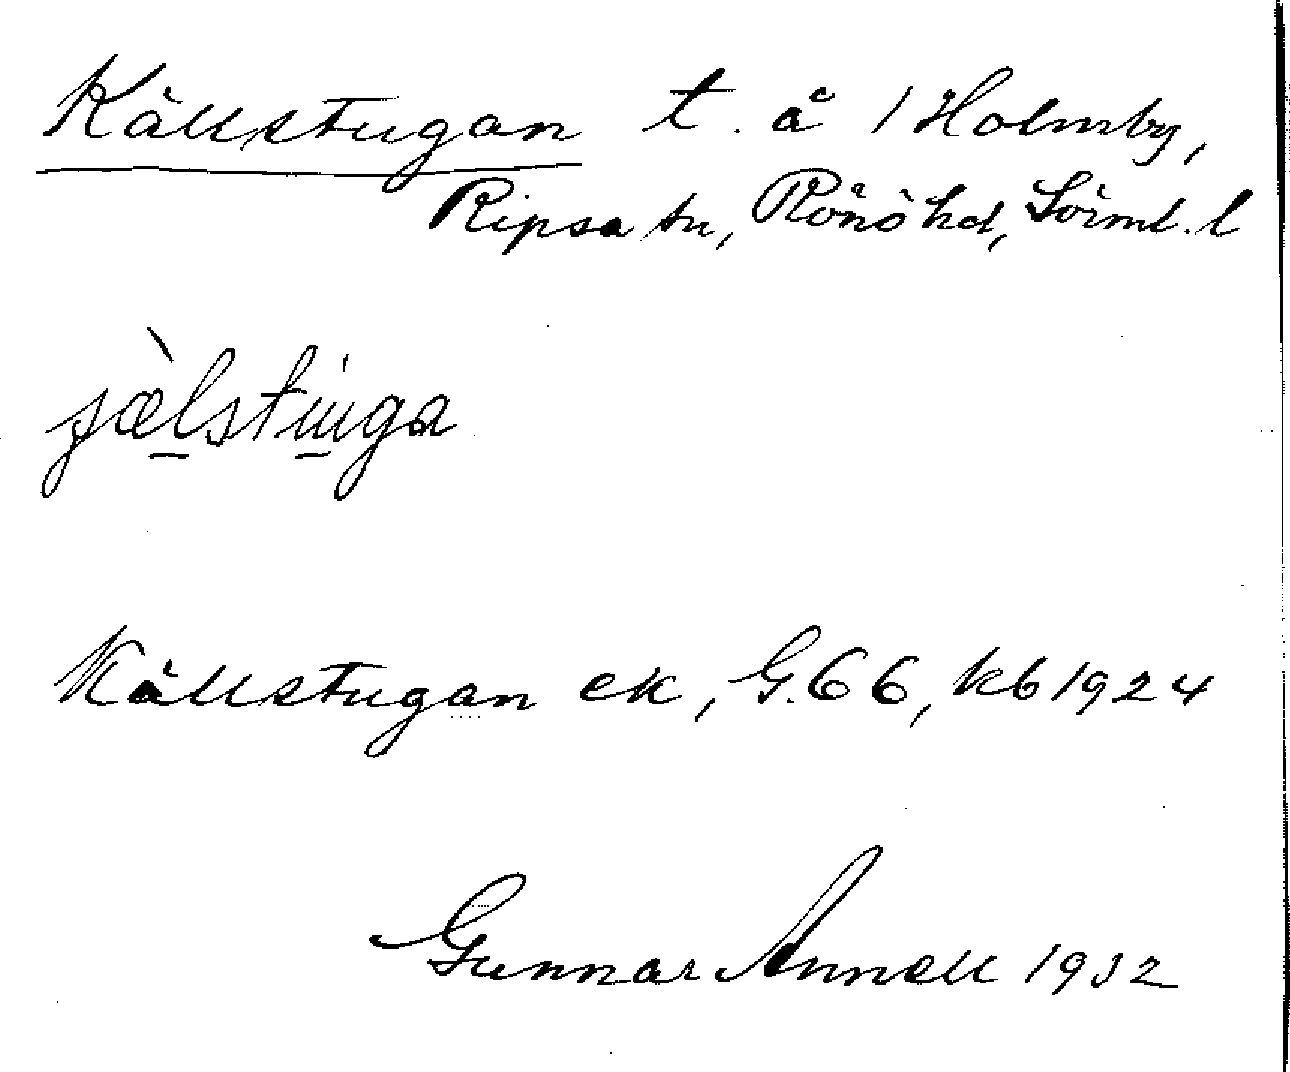 Källstugan t. å 1 Holmby,
Ripsa sn, Rönö hd, Sörml. l
Källstugan ek, G. 66, kb 1924
Gunnar Annell 1932